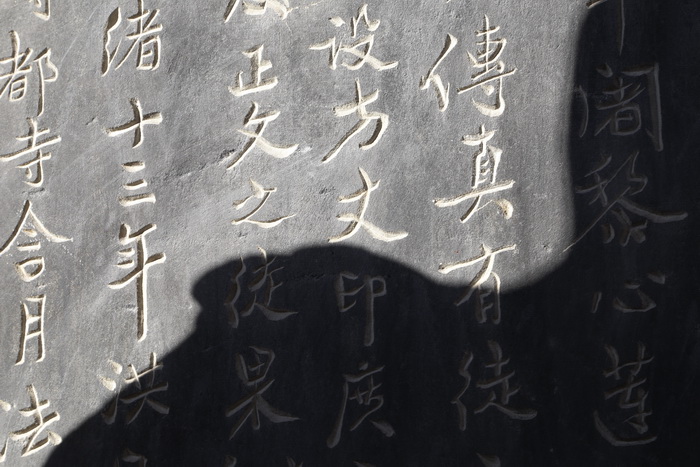 闍黎心蓮
傳真有徒
設方丈印廣
正文之徒果
緒十三年洪
都寺含月法